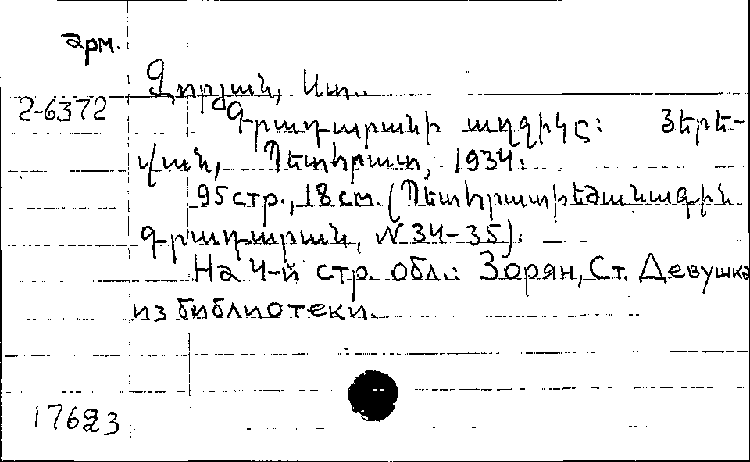 арм.
Զորյան, Ստ..
2-6372
Գրադարանի աղջիկը: Յերե-
վան, Պետհրատ, 1934:
95 стр., 18 см. (Պետհրատի եժանագին
գրադարան, № 34-35):
На 4-й стр. обл.: Зорян, Ст. Девушка
из библиотеки.
17623